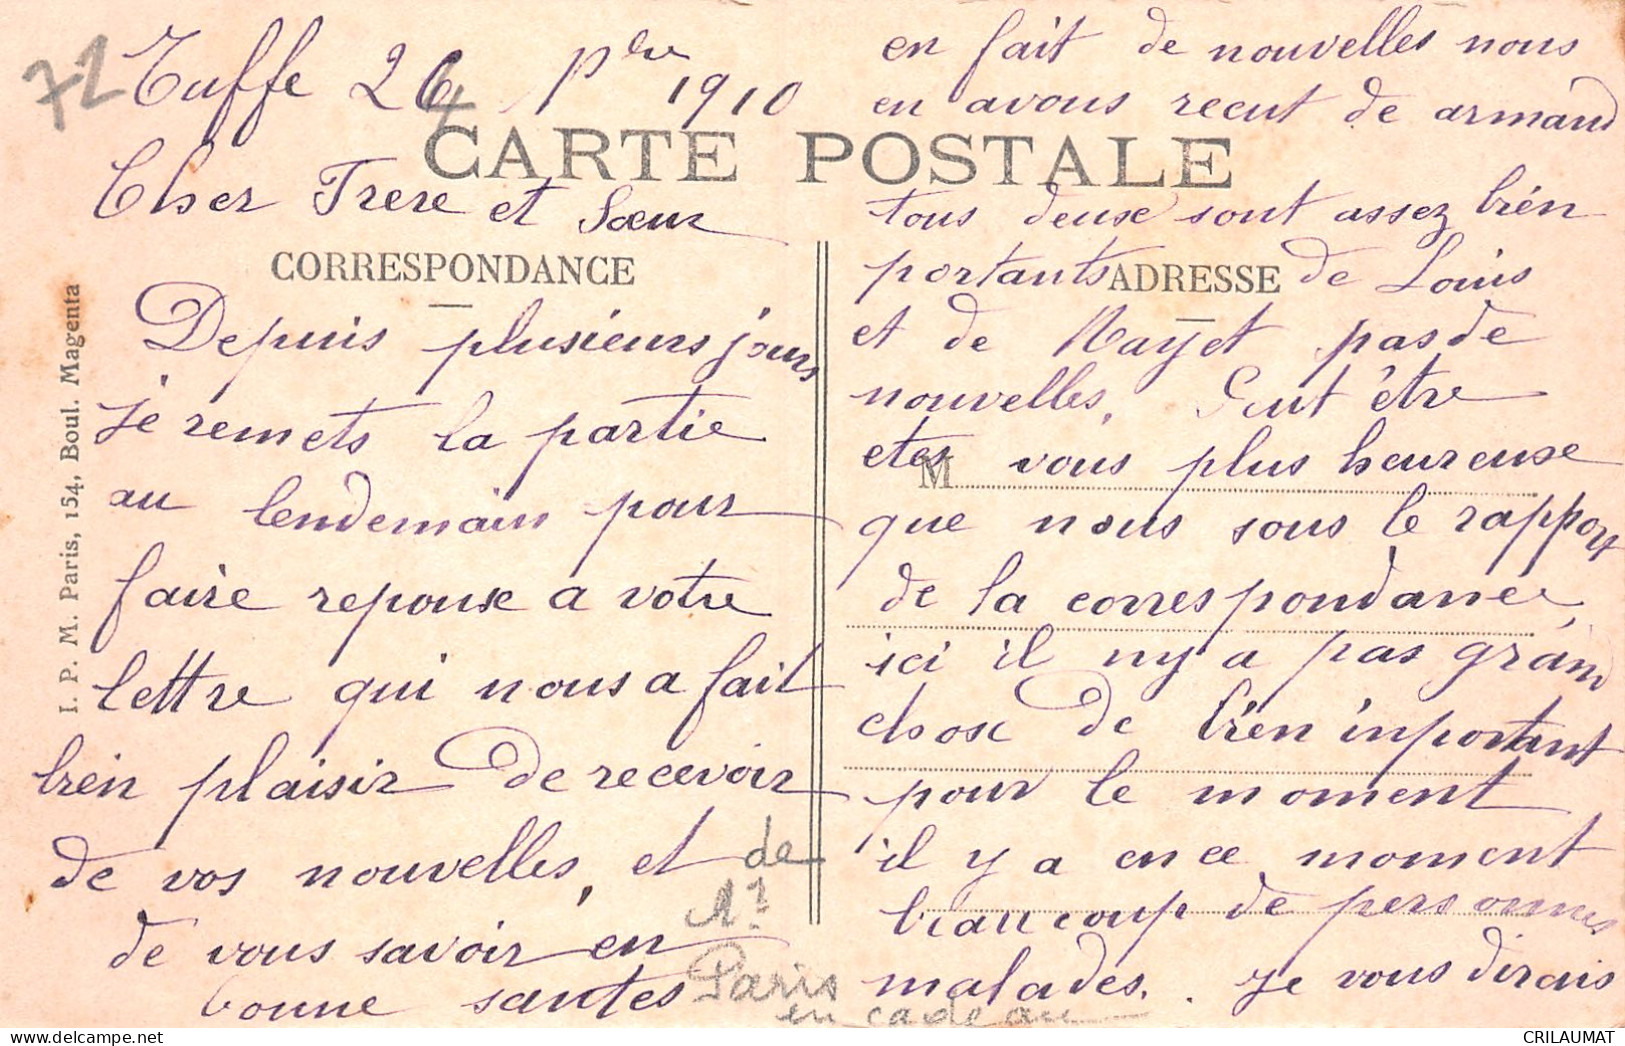 72
Tuffe 26 pbre 1910
CARTE POSTALE
Cher Frere et Sœur
CORRESPONDANCE
Depuis plusieurs jours
je remets la partie
au lendemain pour
faire reponse a votre
lettre qui nous a fait
bien plaisir de recevoir
de vos nouvelles, et
de vous savoir en
bonne santes
I. P. M. Paris, 154, Boul. Magenta
de
Paris
en cadeau
en fait de nouvelles nous
en avons recut de armand
tous deuse sont assez bien
portants de Louis
ADRESSE
et de Mayet pas de
nouvelles. Peut être
etes vous plus heureuse
M
que nous sous le rapport
de la correspondance,
ici il ny a pas grand
chose de bien inportant
pour le moment
il y a en ce moment
beaucoup de personnes
malades. Je vous dirais
CRILAUMAT